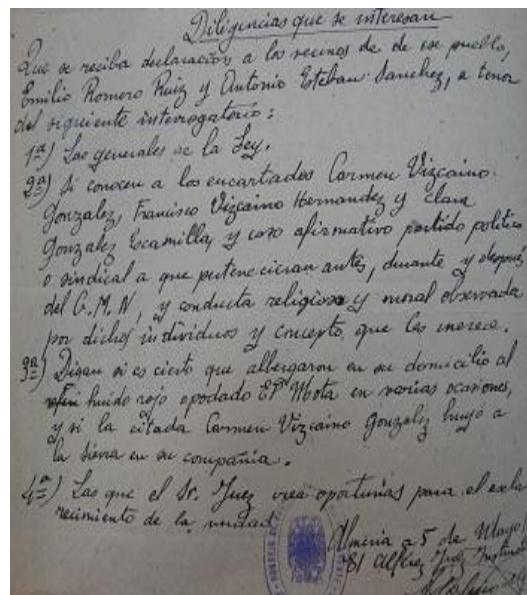 Diligencias que se interesan
Que se reciba declaración a los vecinos de de ese pueblo,
Emilio Romero Ruiz y Antonio Esteban Sanchez, a tenor
del siguiente interrogatorio:
1ª) Las generales de la Ley.
2ª) Si conocen a los encartados Carmen Vizcaino
Gonzalez, Francisco Vizcaino Hernandez y Clara
Gonzalez Escamilla, y caso afirmativo partido politico
o sindical a que pertenecieran antes, durante y después
del G.M.N, y conducta religiosa y moral observada
por dichos individuos y concepto que les merece.
3ª) Digan si es cierto que albergaron en su domicilio al
huido rojo apodado El Mota en varias ocasiones,
y si la citada Carmen Vizcaino Gonzalez huyó a
la sierra en su compañia.
4ª) Las que el Sr. Juez crea oportunas para el escla
recimiento de la verdad.
Almeria a 5 de Mayo,
El Alférez Juez